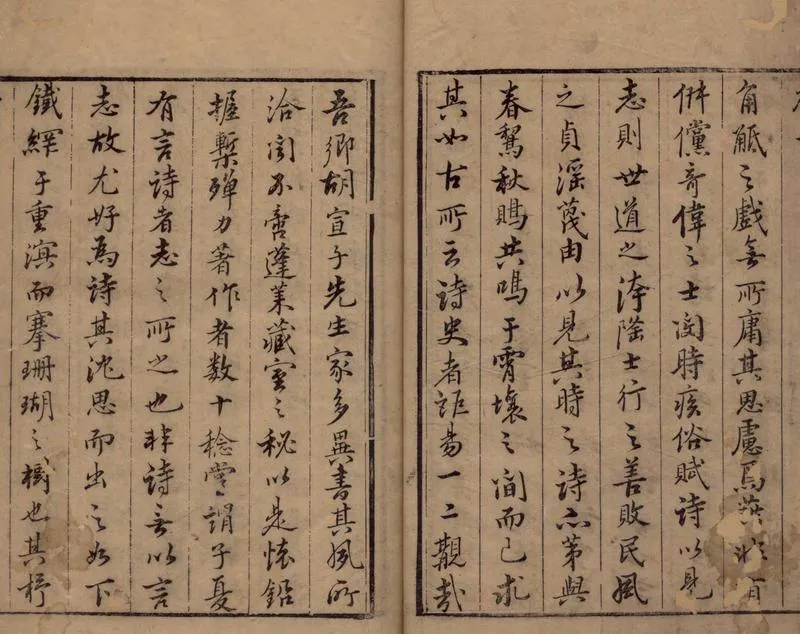 角觝之戲無所庸其思慮焉有
儻奇偉之士閔時疾俗賦詩以見
志則世道之洿隆士行之善敗民風
之貞淫蔑由以見其時之詩亦第與
春鶯秋鵙共鳴于霄壤之間而已求
其如古所云詩史者詎易一二覯哉
吾鄉胡宣子先生家多異書其夙所
洽聞不啻蓬萊藏室之秘以是懷鉛
握槧殫力著作者數十稔嘗謂子夏
有言詩者志之所之也非詩無以言
志故尤好為詩其沈思而出之如下
鐵網于重溟而搴珊瑚之樹也其杼